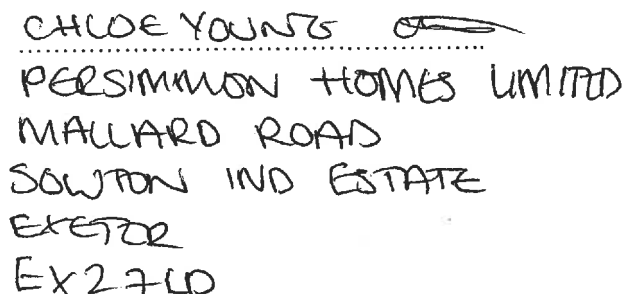 CHLOE YOUNG
PERSIMMON HOMES LIMITED
MALLARD ROAD
SOWTON IND ESTATE
EXETER
EX2 7LD